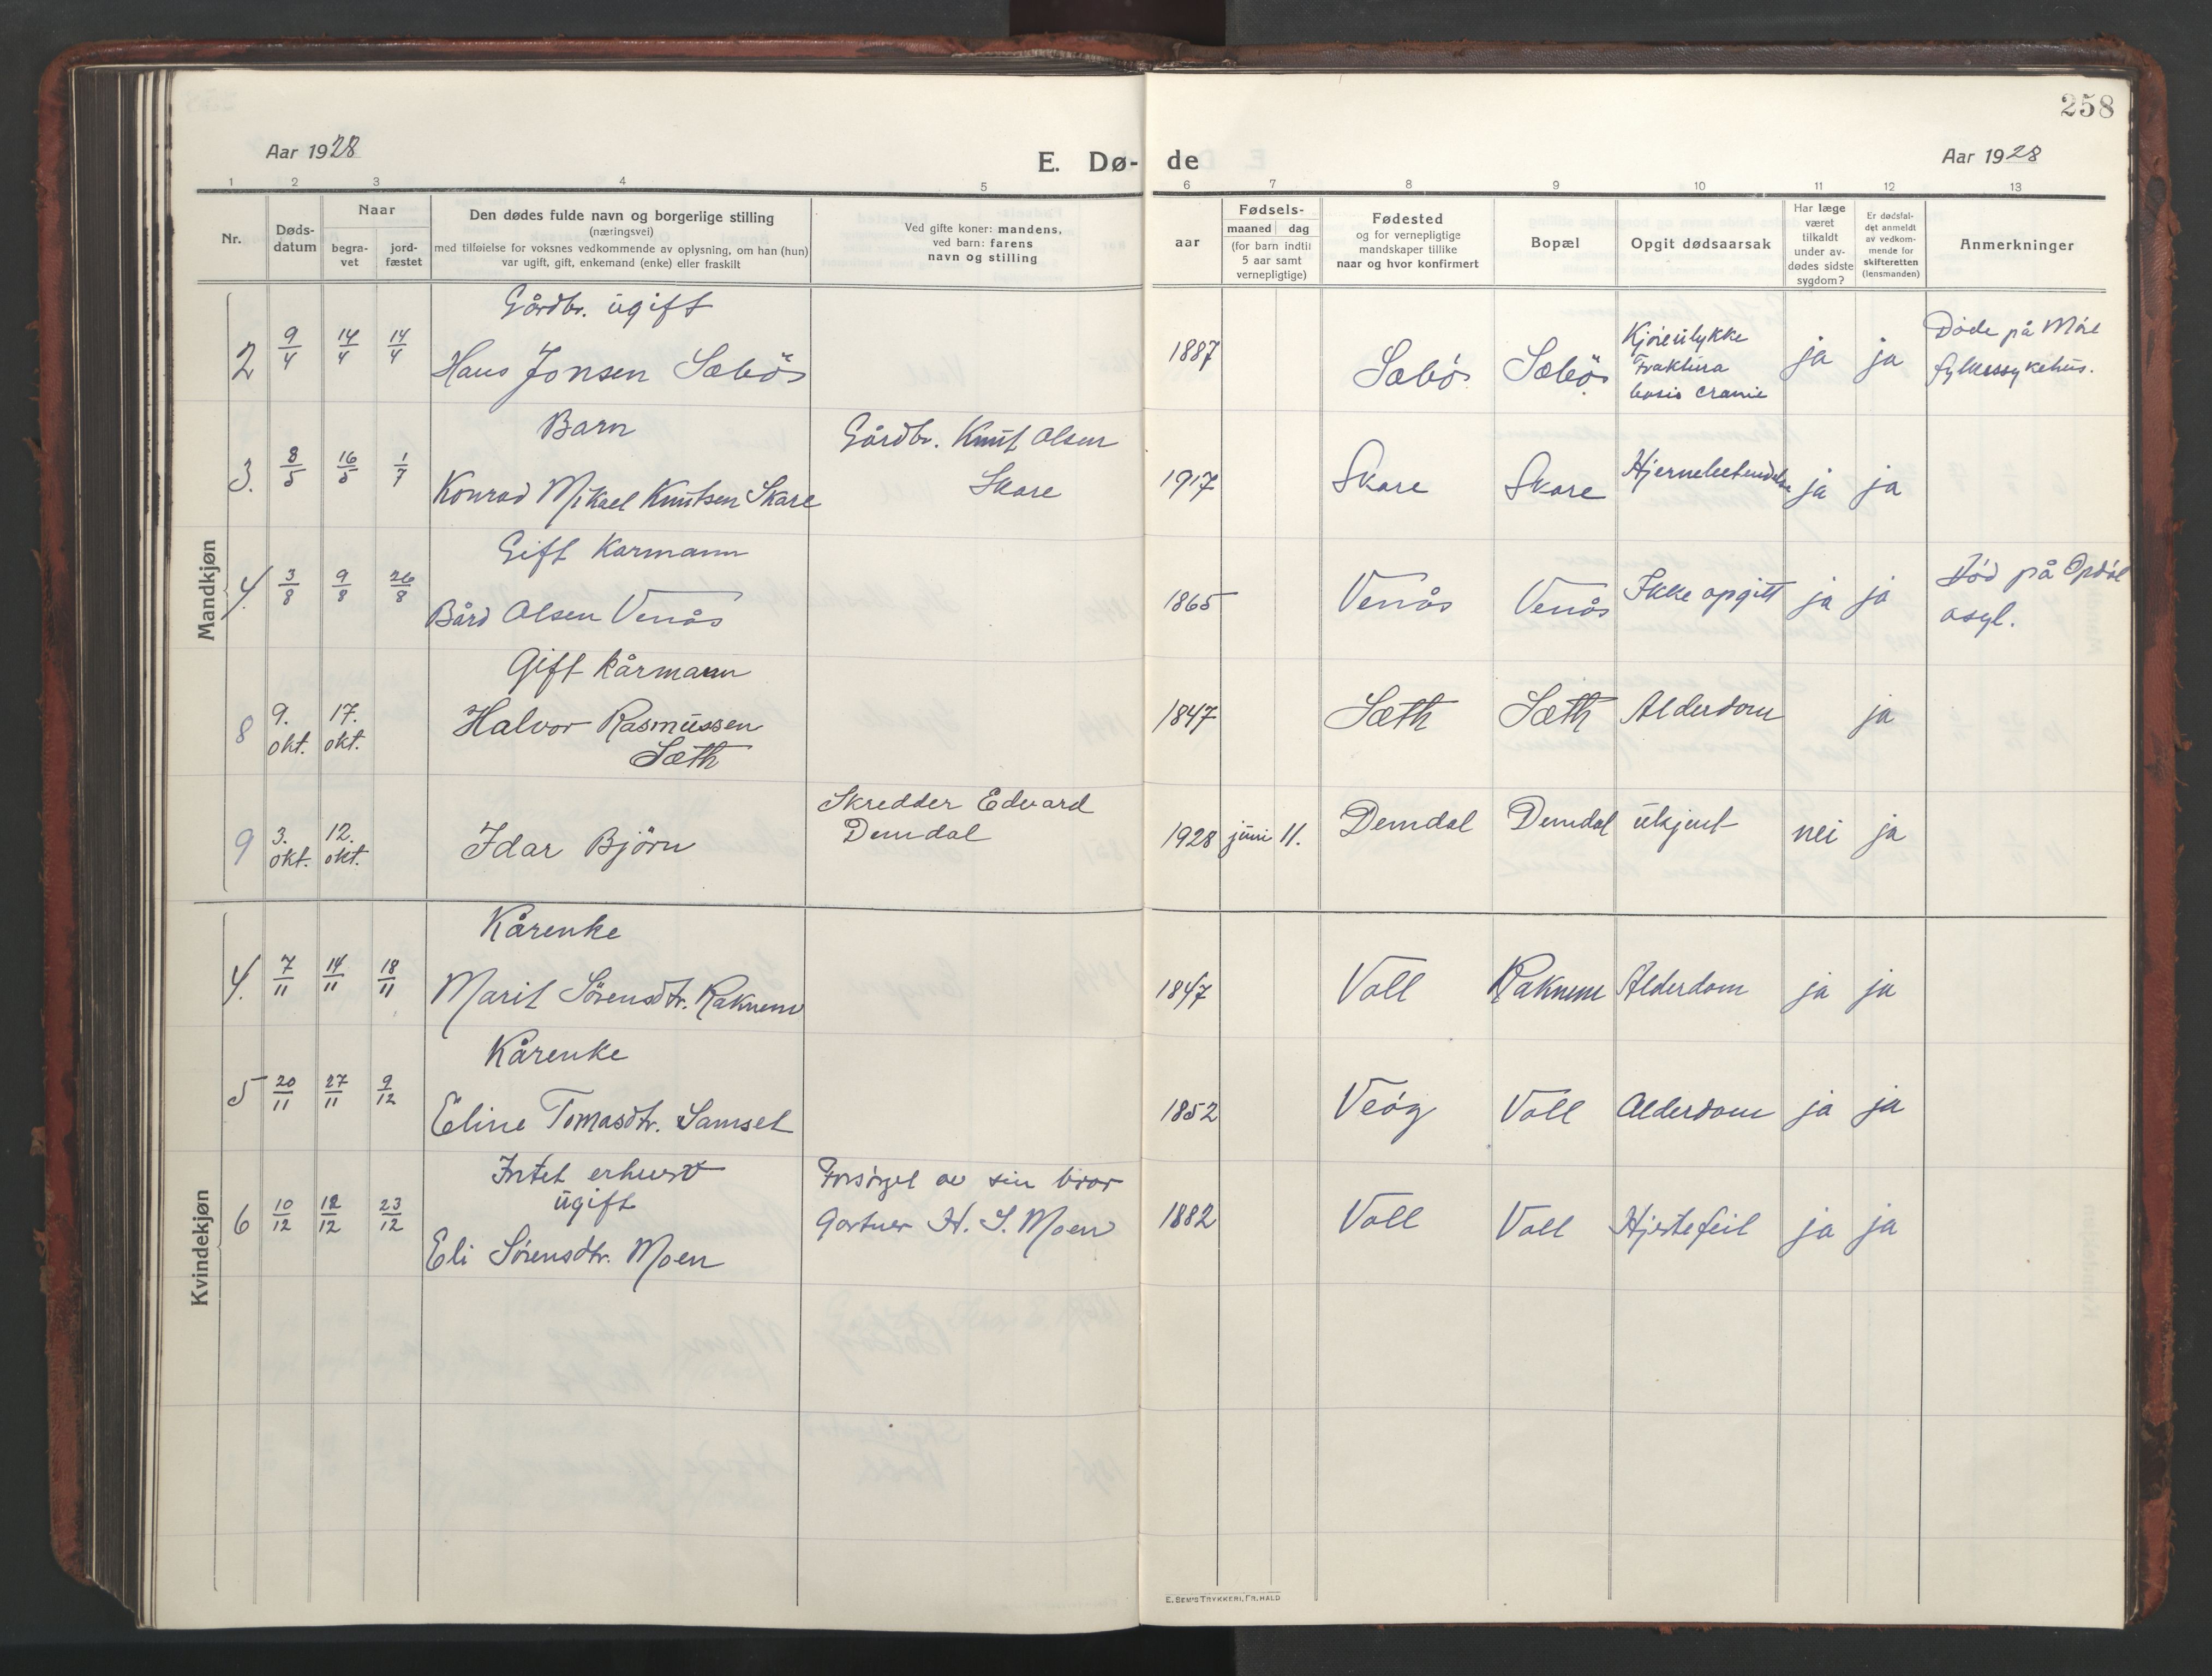 258
Aar 1928
E. Dø- de
Aar 1928
1 2 3 4 5 6 7 8 9 10 11 12 13
Nr.
Døds-
datum
Naar
begra-
vet
jord-
fæstet
Den dødes fulde navn og borgerlige stilling
(næringsvei)
med tilføielse for voksnes vedkommende av oplysning, om han (hun)
var ugift, gift, enkemand (enke) eller fraskilt
Ved gifte koner: mandens,
ved barn: farens
navn og stilling
aar
Fødsels-
maaned dag
(for barn indtil
5 aar samt
vernepligtige)
Fødested
og for vernepligtige
mandskaper tillike
naar og hvor konfirmert
Bopæl
Opgit dødsaarsak
Har læge
været
tilkaldt
under av-
dødes sidste
sygdom?
Er dødsfal-
det anmeldt
av vedkom-
mende for
skifteretten
(lensmanden)
Anmerkninger
Mandkjøn
2 9/4 14/4 14/4
Gårdbr. ugift
Hans Jonsen Sæbös
1887 Sæbö Sæbös
Kjøreulykke
Fraktura
basis cranie
ja ja
Døde på Møre
fylkessykehus.
3. 8/5 16/5 1/7
Barn
Konrad Mikael Knutsen Skare
Gårdbr. Knut Olsen
Skare
1917 Skare Skare Hjernebetendelse ja ja
4. 3/8 9/8 26/8
Gift Karmann
Bård Olsen Venås
1865 Venås Venås Ikke opgitt ja ja
Död på Opdöl
asyl.
8 9. okt. 17. okt.
Gift kårmann
Halvor Rasmussen
Sæth
1847 Sæth Sæth Alderdom ja
9 3. okt. 12. okt.
Idar Björn
Skredder Edvard
Demdal
1928 juni 11. Demdal Demdal ukjent nei ja
Kvindekjøn
4. 7/11 14/11 18/11
Kårenke
Marit Sörensdtr. Raknem
1847 Voll Raknem Alderdom ja ja
5 20/11 27/11 9/12
Kårenke
Eline Tomasdtr. Samset
1852 Veög Voll Alderdom ja ja
6 10/12 18/12 23/12
Intet erhverv
ugift
Eli Sörensdtr. Moen
Forsörget av sin bror
Gartner H. S. Moen
1882 Voll Voll Hjertefeil ja ja
E. SEM'S TRYKKERI, FR.HALD